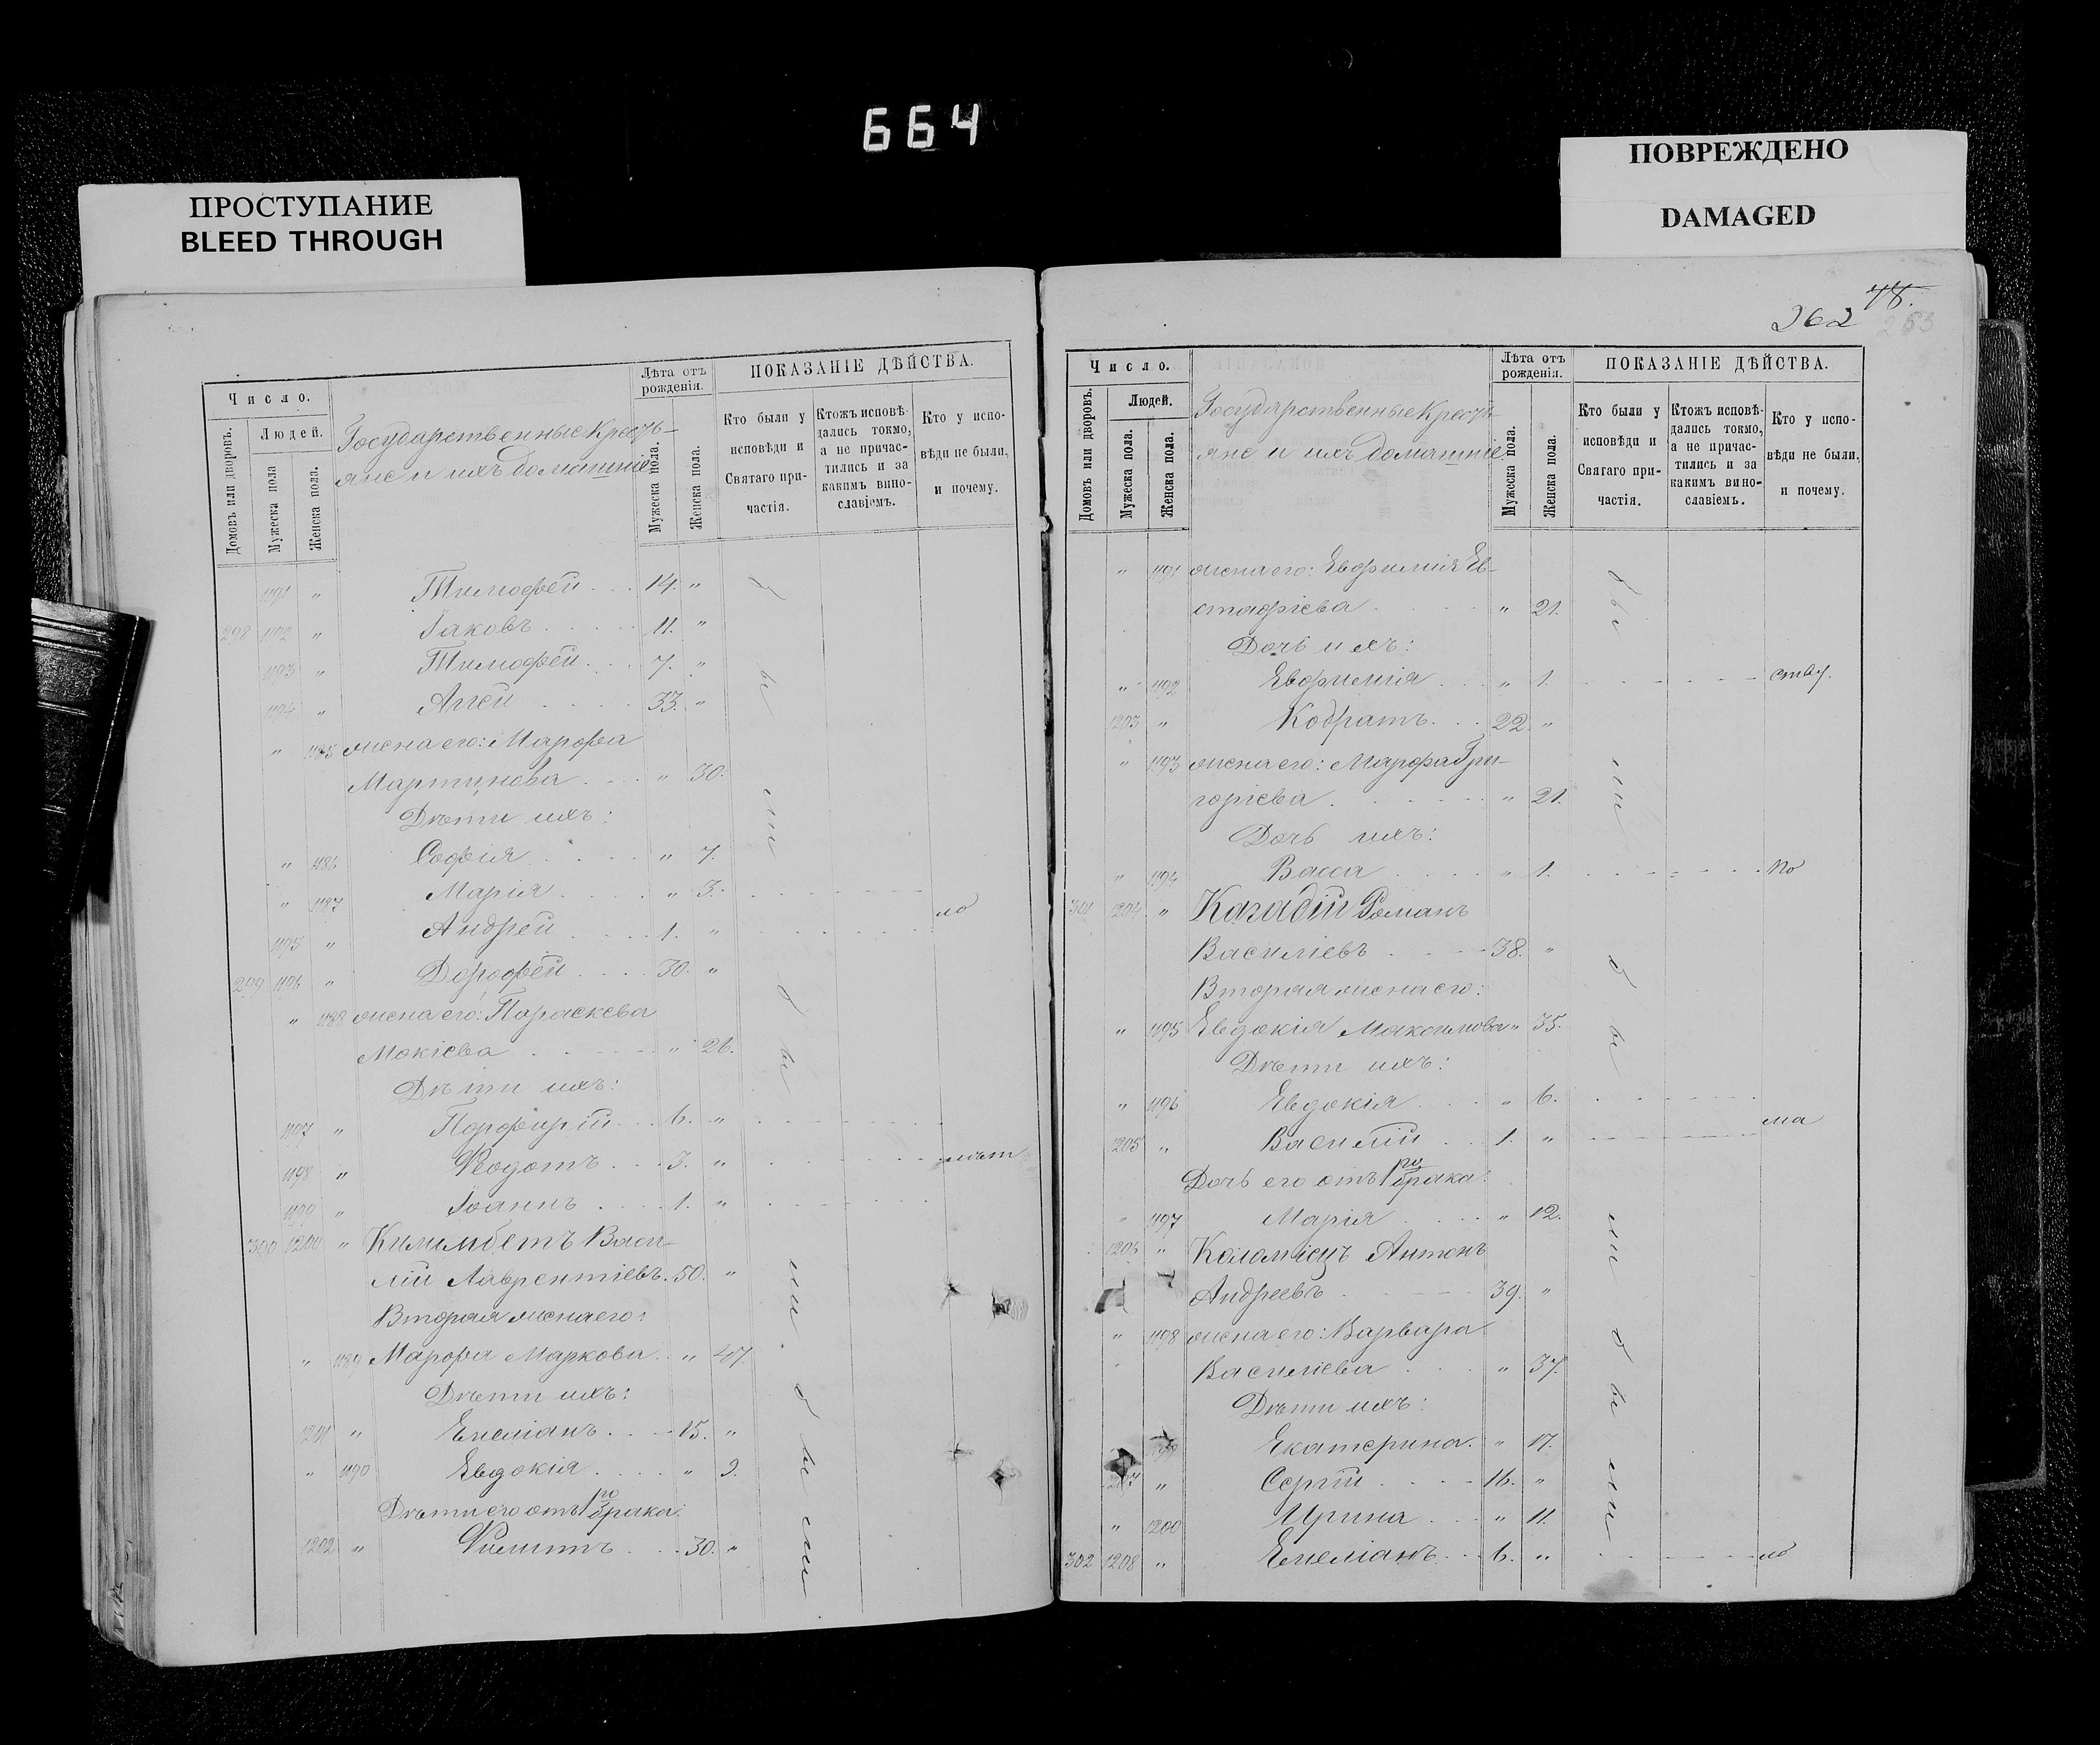 664
ПРОСТУПАНИЕ
BLEED THROUGH
ПОВРЕЖДЕНО
DAMAGED
Число.
Домовъ или дворовъ.
Людей.
Мужеска пола
Женска пола.
Государственные Кресть-
яне и ихъ домашніе
Лѣта отъ рожденія.
Мужеска пола.
Женска пола.
ПОКАЗАНІЕ ДѢЙСТВА.
Кто были у исповѣди и Святаго при-
частія.
Ктожъ исповѣ-
дались токмо,
а не причас-
тились и за
какимъ вино-
славіемъ.
Кто у испо-
вѣди не были,
и почему.
1191 " Тимофей 14. "
298 1192 " Іаковъ 11. "
1193 " Тимофей 7. "
1194 " Аггей 33. "
" 1185 жена его: Марфа
Мартинова " 30.
Дѣти ихъ:
" 1186 Софія " 7.
" 1187 Марія " 3.
1195 " Андрей 1. "
ло
299 1196 " Дорофей 30. "
" 1188 жена его: Параскева
Мокіева " 26.
Дѣти ихъ:
1197 " Порфирій 6. "
1198 " Ѳеодотъ 3. "
1199 " Іоаннъ 1. "
300 1200 " Килимбетъ Васи-
лій Лаврентіевъ. 50. "
Вторая жена его:
" 1189 Марфа Маркова " 47.
Дѣти ихъ:
1201 " Емеліанъ 15. "
" 1190 Евдокія " 9.
Дѣти его отъ 1го брака:
1202 " Филиппъ 30. "
были
были
были
262
78.
253
Число.
Домовъ или дворовъ.
Людей.
Мужеска пола.
Женска пола.
Государственные Кресть-
яне и ихъ домашніе.
Лѣта отъ рожденія.
Мужеска пола.
Женска пола.
ПОКАЗАНІЕ ДѢЙСТВА.
Кто были у исповѣди и Святаго при-
частія.
Ктожъ исповѣ-
дались токмо,
а не причас-
тились и за
какимъ вино-
славіемъ.
Кто у испо-
вѣди не были,
и почему.
" 1191 жена его: Евфимія Ев-
стафіева " 21.
Дочь ихъ:
" 1192 Евфимія " 1.
1203 " Кодратъ 22. "
" 1193 жена его: Марфа Гри-
горіева " 21.
Дочь ихъ:
" 1194 Васса " 1. по
301 1204 " Кагадій Романъ
Василіевъ 38. "
Вторая жена его:
" 1195 Евдокія Максимова " 35.
Дѣти ихъ:
" 1196 Евдокія " 6.
1205 " Василій 1. "
ма
Дочь его отъ 1го брака:
" 1197 Марія " 12.
1206 " Коломіецъ Антонъ
Андреевъ 39. "
" 1198 жена его: Варвара
Василіева " 37.
Дѣти ихъ:
Екатерина. " 17.
" Сергій 16. "
" 1200 Ирина " 11.
302 1208 " Емеліанъ 6. "
ло
были
были
были